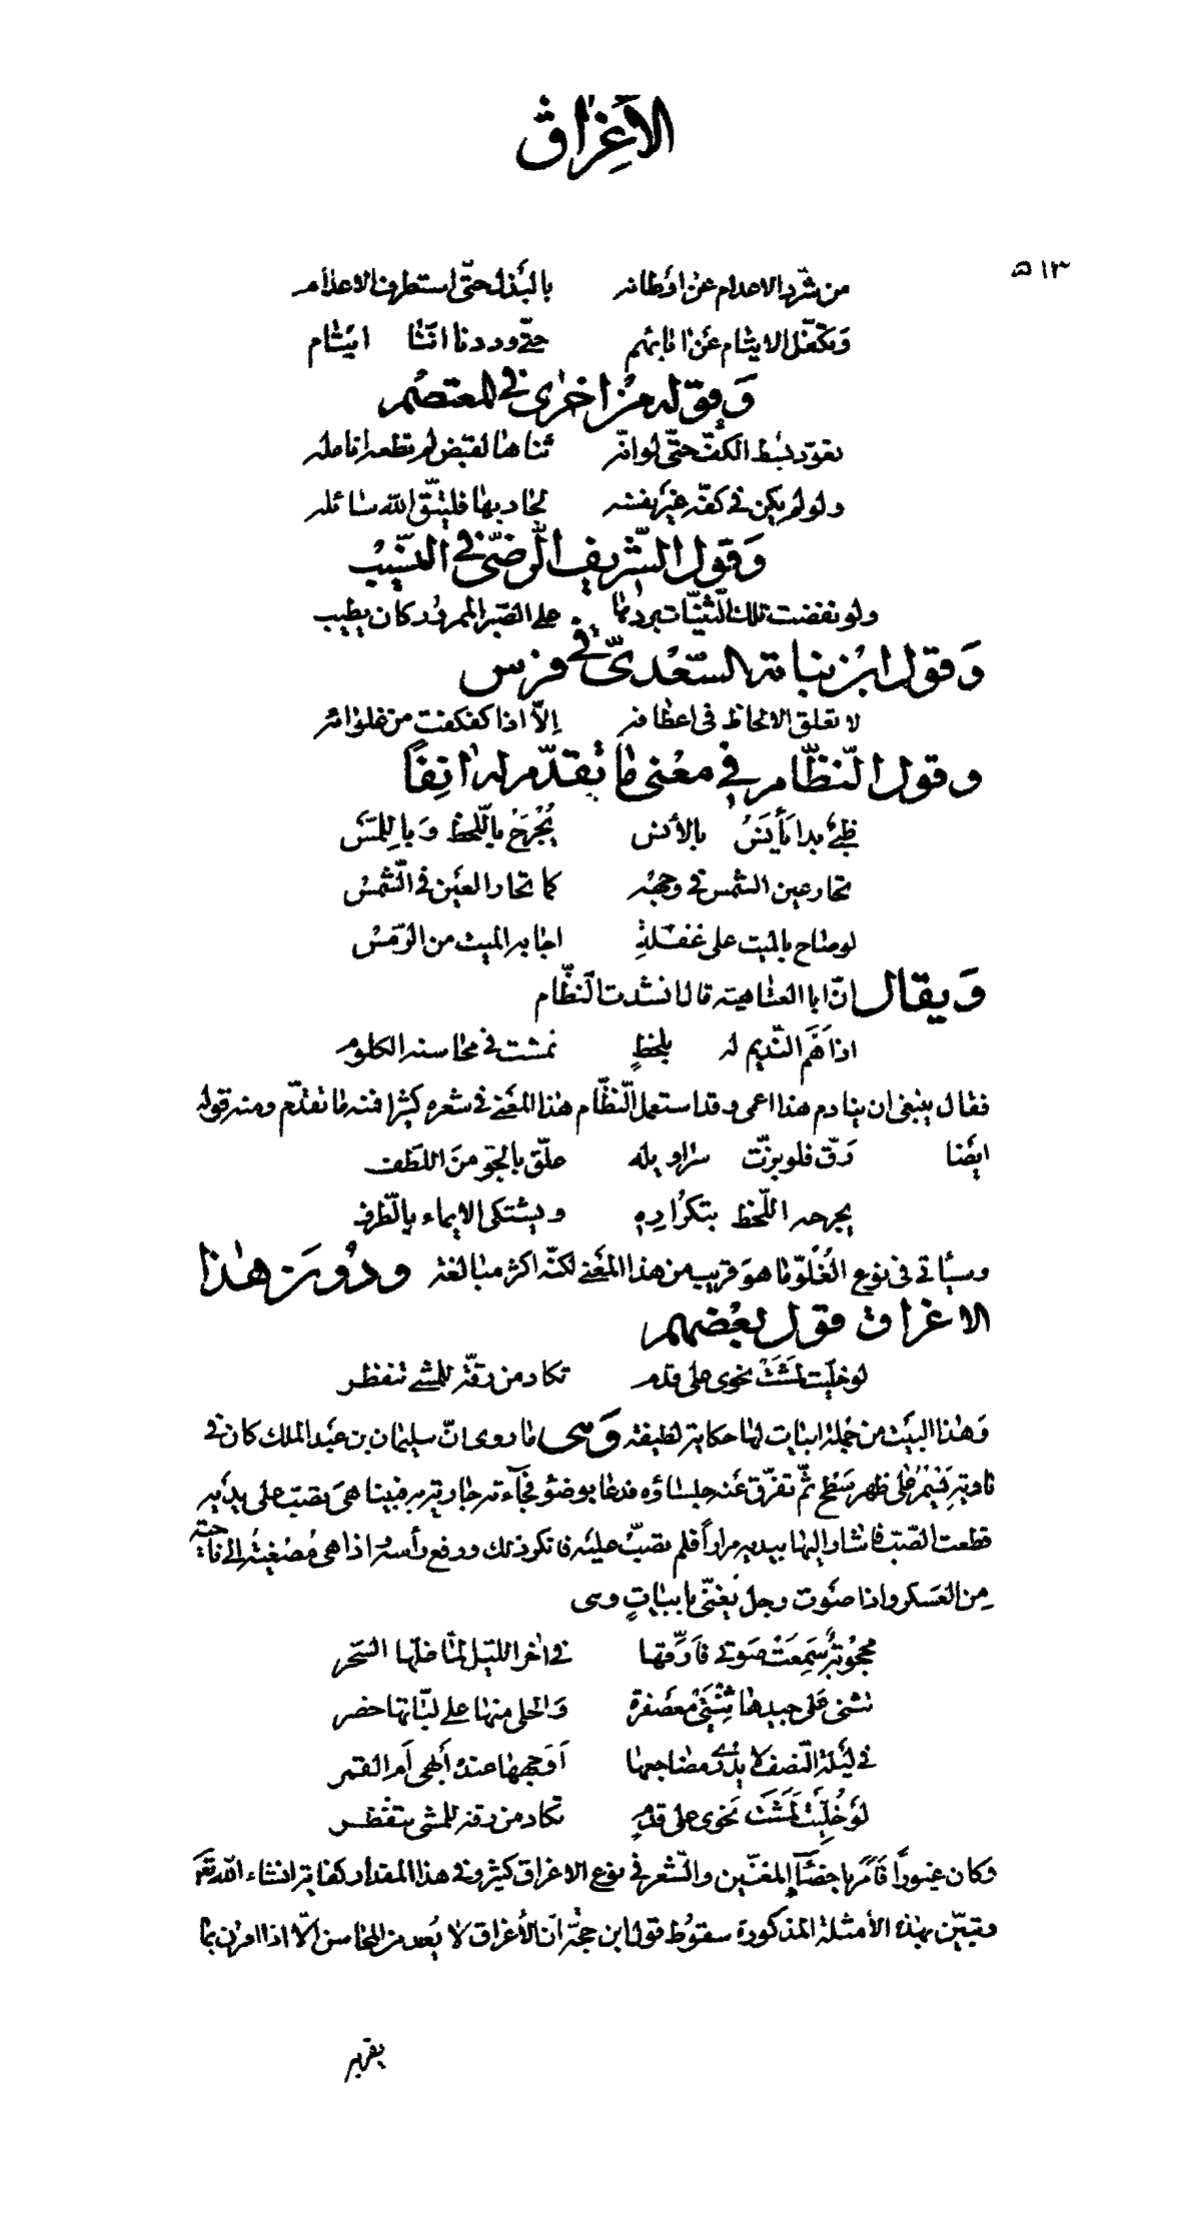 الاغراق
٥١٣
من شرّد الاعدام عن اوطانه بالبذل حتّى استطرف الاعدام
وتكفّل الايتام عن ابائهم حتّى وددنا انّنا ايتام
وقوله من اخرى في المعتصم
تعوّد بسط الكفّ حتّى لو انّه ثناها لقبض لم تطعه انامله
ولو لم يكن في كفّه غير نفسه لجاد بها فليتّق الله سائله
وقول الشّريف الرّضىّ في النّسيب
ولو نفضت تلك الثّنيّات بردها على الصّبر الممرور كان يطيب
وقول ابن نباتة السّعدىّ في فرس
لا تعلق الالحاظ فى اعطافه الّا اذا كفكفت من غلوائه
وقول النّظّام في معنى ما تقدّم له انفًا
ظبى بدا يأيس بالأنس يُجْرَحُ باللّحظ وباللمس
تحار عين الشمس في وجهه كما تحار العين في الشّمس
لو صاح بالميت على غفلةٍ اجابه الميت من الرّمس
ويقال انّ ابا العتاهية قال انشدت النّظّام
اذا همّ النّديم له بلحظٍ تمشت في محاسنه الكلوم
فقال ينبغى ان ينادم هذا اعمى وقد استعمل النّظّام هذا المعنى في شعره كثيرا فمنه ما تقدّم ومنه قوله
ايضا رقّ فلو بزّت سراويله علّق بالجوّ من اللطف
يجرحه اللّحظ بتكرارهٍ ويشتكى الايماء بالطّرف
وسيأتى فى نوع الغُلُوّ ما هو قريب من هذا المعنى لكنّه اكثر مبالغة ودون هذا
الاغراق قول بعضهم
لو خلّيت لمشت نحوى على قدم تكاد من رقّة للمشى تنفطر
وهذا البيت من جملة ابيات لها حكاية لطيفة وهى ما روى انّ سليمان بن عبد الملك كان في
بادية يسمر على ظهر سطح ثمّ تفرّق عنه جلساؤه فدعا بوضوء فجآءته جارية به فبينا هى تصبّ على يديه
قطعت الصّبّ فاشار اليها بيديه مرارًا فلم تصبّ عليه فانكر ذلك ورفع رأسه واذا هى مُصْغِية الى ناحية
من العسكر واذا صوت رجل يُغنّى بابياتٍ وهى
محجوبة سمعت صوتى فارّقها في اخر الليل لمّا طلّها السّحر
تثنى على جيدها ثِنْتَىْ معصفرة والحلى منها على لبّاتها خضر
في ليلة النّصف لا يدرى مضاجعها اوجهها عنده أبهى أم القمر
لو خُلّيت لمشت نحوى على قدمٍ تكاد من رقة للمشى تنفطر
وكان غيورًا فأمر باخصآء المغنّين والشّعر في نوع الاغراق كثير وفي هذا المقدار كفاية انشاء الله تع
وتبيّن بهذه الأمثلة المذكورة سقوط قول ابن حجّة انّ الأغراق لا يُعد من المحاسن الّا اذا اقترن بما
يقربه